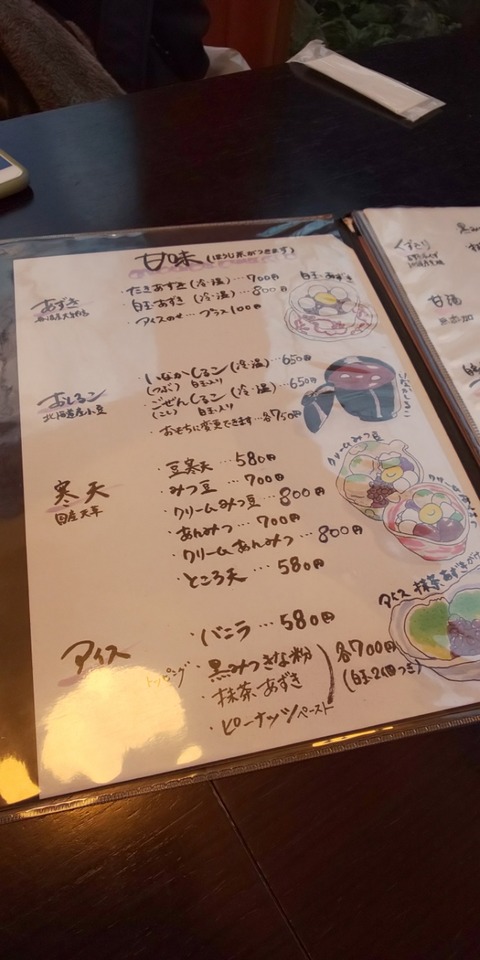 甘味 (ほうじ茶がつきます)
あずき
・たきあずき(冷・温)…700円
・白玉あずき(冷・温)…800円
・アイスのせ…プラス100円
白玉あずき
おしるこ
北海道産小豆
・いなかしるこ(冷・温)…650円
(つぶ) 白玉入り
・ごぜんしるこ(冷・温)…650円
(こし) 白玉入り
・おもちに変更できます…各750円
いなかしるこ
寒天
国産天草
・豆寒天…580円
・みつ豆…700円
・クリームみつ豆…800円
・あんみつ…700円
・クリームあんみつ…800円
・ところ天…580円
クリームみつ豆
アイス
・バニラ…580円
トッピング
・黒みつきな粉
・抹茶・あずき
・ピーナッツペースト
各700円
(白玉2個つき)
アイス 抹茶あずき
くずきり
甘酒
無添加